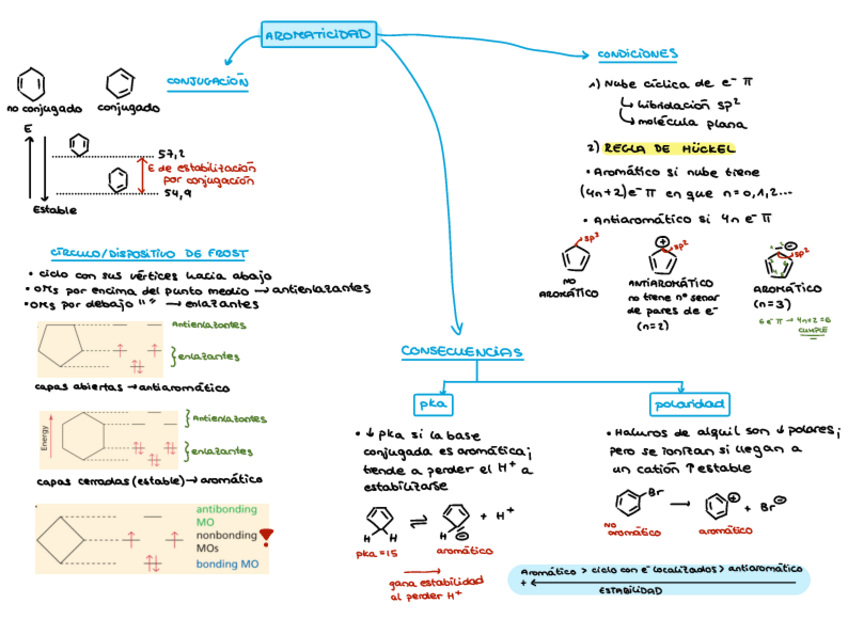 AROMATICIDAD
CONJUGACIÓN
no conjugado
conjugado
E
57,2
E de estabilización
por conjugación
54,9
Estable
CONDICIONES
1) Nube cíclica de e⁻ π
↳ hibridación sp²
↳ molécula plana
2) REGLA DE HÜCKEL
• Aromático si nube tiene
(4n+2)e⁻ π en que n=0,1,2...
• Antiaromático si 4n e⁻ π
sp³
NO
AROMÁTICO
⊕
sp²
ANTIAROMÁTICO
no tiene nº senar
de pares de e⁻
(n=2)
⊖
sp²
AROMÁTICO
(n=3)
6 e⁻ π → 4n+2=6
CUMPLE
CÍRCULO/DISPOSITIVO DE FROST
• ciclo con sus vértices hacia abajo
• OMs por encima del punto medio → antienlazantes
• OMs por debajo " " → enlazantes
Antienlazantes
}enlazantes
capas abiertas → antiaromático
Energy
}Antienlazantes
}enlazantes
capas cerradas (estable) → aromático
antibonding
MO
nonbonding
MOs
bonding MO
CONSECUENCIAS
pka
• ↓ pka si la base
conjugada es aromática;
tiende a perder el H⁺ a
estabilizarse
H H
⇌
H
⊖
+ H⁺
pka=15
aromático
gana estabilidad
al perder H⁺
polaridad
• Haluros de alquil son ↓ polares;
pero se ionizan si llegan a
un catión ↑ estable
Br
→
⊕
+ Br⊖
NO
aromático
aromático
Aromático > ciclo con e⁻ localizados > antiaromático
+
ESTABILIDAD